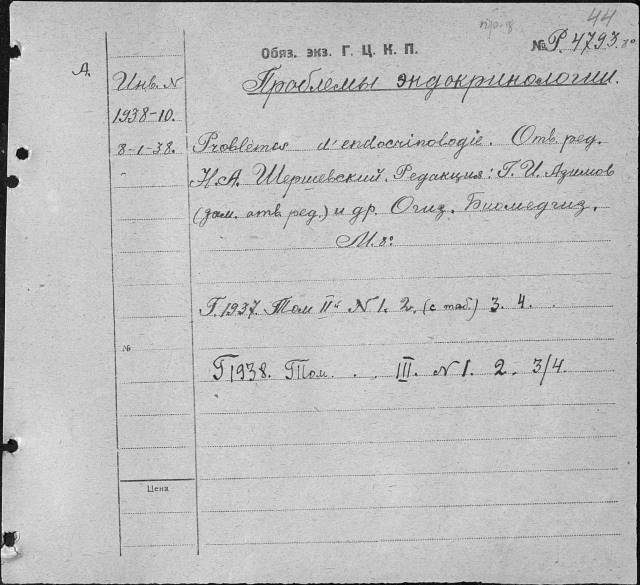 44
Обяз. экз. Г. Ц. К. П.
№ Р. 4793. 8°
А.
Инв. N
Проблемы эндокринологии.
1938-10.
8-I-38.
Problèmes d'endocrinologie. Отв. ред.
Н.А. Шерешевский. Редакция: Г. И. Азимов
(зам. отв. ред.) и др. Огиз. Биомедгиз.
М. 8°
Г. 1937. Том II й N 1. 2. (с таб.) 3. 4.
№
Г 1938. Том . . III. N 1. 2. 3/4.
Цена